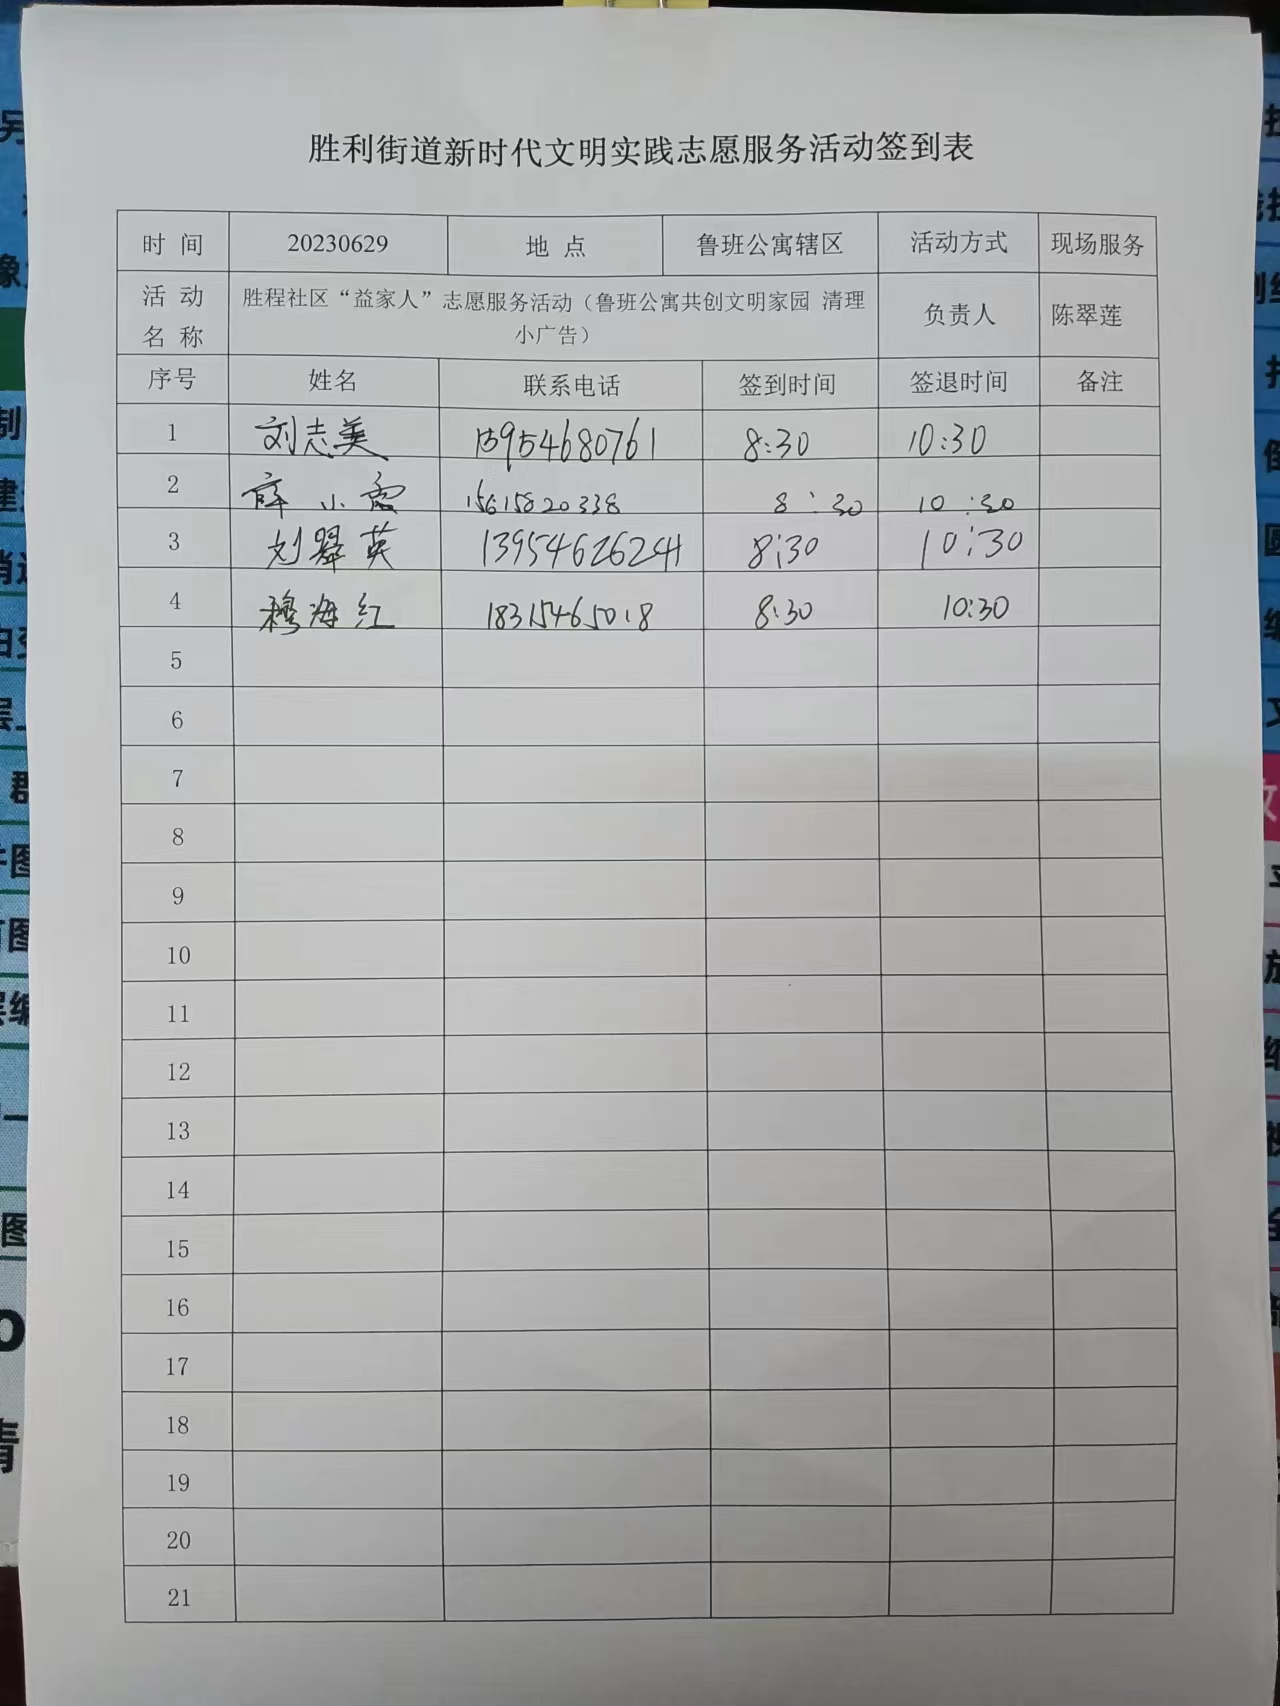 胜利街道新时代文明实践志愿服务活动签到表
时 间 20230629 地 点 鲁班公寓辖区 活动方式 现场服务
活 动 名 称 胜程社区“益家人”志愿服务活动（鲁班公寓共创文明家园 清理小广告） 负责人 陈翠莲
序号 姓名 联系电话 签到时间 签退时间 备注
1 刘志美 15954680761 8:30 10:30
2 薛小霞 15615820338 8:30 10:30
3 刘翠英 13954626241 8:30 10:30
4 穆海红 18315465018 8:30 10:30
5
6
7
8
9
10
11
12
13
14
15
16
17
18
19
20
21